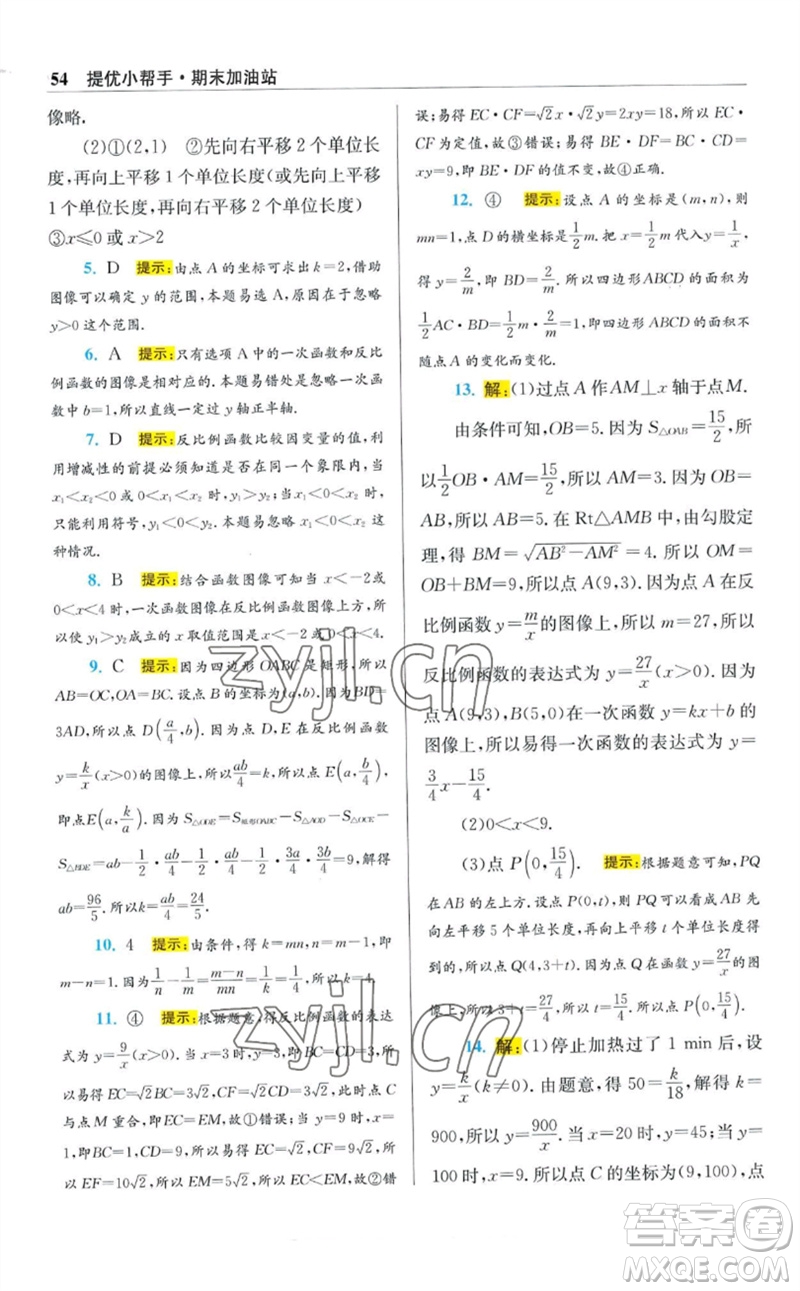 54 提优小帮手·期末加油站
像略.
(2)①(2,1) ②先向右平移 2 个单位长
度,再向上平移 1 个单位长度(或先向上平移
1 个单位长度,再向右平移 2 个单位长度)
③x≤0 或 x>2
5. D 提示:由点 A 的坐标可求出 k=2,借助
图像可以确定 y 的范围.本题易选 A,原因在于忽略
y>0 这个范围.
6. A 提示:只有选项 A 中的一次函数和反比
例函数的图像是相对应的.本题易错处是忽略一次函
数中 b=1,所以直线一定过 y 轴正半轴.
7. D 提示:反比例函数比较因变量的值,利
用增减性的前提必须知道是否在同一个象限内,当
x₁<x₂<0 或 0<x₁<x₂ 时,y₁>y₂;当 x₁<0<x₂ 时,
只能利用符号,y₁<0<y₂.本题易忽略 x₁<0<x₂ 这
种情况.
8. B 提示:结合函数图像可知当 x<-2或
0<x<4 时,一次函数图像在反比例函数图像上方,所
以使 y₁>y₂成立的 x 取值范围是 x<-2 或 0<x<4.
9. C 提示:因为四边形 OABC 是矩形,所以
AB=OC,OA=BC.设点 B 的坐标为(a,b).因为BD=
3AD,所以点 D(a/4,b).因为点 D,E 在反比例函数
y=k/x(x>0)的图像上,所以ab/4=k,所以点 E(a,k/a),
即点E(a,b/4).因为 S△ODE=S矩形OABC-S△AOD-S△OCE-
S△BDE=ab-1/2·ab/4-1/2·ab/4-1/2·3a/4·3b/4=9,解得
ab=96/5.所以k=ab/4=24/5.
10. 4 提示:由条件,得 k=mn,n=m-1,即
m-n=1.因为1/n-1/m=(m-n)/mn=1/k=1/4,所以k=4.
11. ④ 提示:根据题意,得反比例函数的表达
式为 y=9/x(x>0).当 x=3 时,y=3,即BC=CD=3,所
以易得 EC=√2BC=3√2,CF=√2CD=3√2,此时点 C
与点 M 重合,即EC=EM,故①错误;当 y=9 时,x=1,
即BC=1,CD=9,所以EC=√2,CF=9√2,所
以 EF=10√2,EM=5√2,所以 EC<EM,故②错
误;易得 EC·CF=√2x·√2y=2xy=18,所以 EC·
CF为定值,故③错误;易得 BE·DF=BC·CD=
xy=9,即 BE·DF 的值不变,故④正确.
12. ④ 提示:设点 A 的坐标是(m,n),则
mn=1,点 D 的横坐标是1/2m.把 x=1/2m 代入y=1/x,
得 y=2/m,即 BD=2/m.所以四边形ABCD 的面积为
1/2AC·BD=1/2m·2/m=1,即四边形 ABCD 的面积不
随点 A 的变化而变化.
13. 解:(1)过点 A 作AM⊥x 轴于点M.
由条件可知,OB=5.因为 S△OAB=15/2,所
以1/2OB·AM=15/2,所以 AM=3.因为 OB=
AB,所以 AB=5.在 Rt△AMB 中,由勾股定
理,得 BM=√(AB²-AM²)=4.所以 OM=
OB+BM=9,所以点 A(9,3).因为点 A 在反
比例函数 y=m/x的图像上,所以 m=27,所以
反比例函数的表达式为 y=27/x(x>0).因为
点A(9,3),B(5,0)在一次函数 y=kx+b 的
图像上,所以易得一次函数的表达式为 y=
3/4x-15/4.
(2)0<x<9.
(3)点 P(0,15/4). 提示:根据题意可知,PQ
在 AB 的左上方.设点 P(0,t),则 PQ可以看成 AB 先
向左平移 5 个单位长度,再向上平移 t 个单位长度得
到的,所以点 Q(4,3+t).因为点 Q在 y=27/x的图
像上,所以 3+t=27/4,所以 t=15/4,所以点 P(0,15/4).
14. 解:(1)停止加热过了 1 min 后,设
y=k/x(k≠0).由题意,得 50=k/18,解得 k=
900,所以 y=900/x.当 x=20 时,y=45;当 y=
100 时,x=9.所以点 C 的坐标为(9,100),点
zyjl.cn
zyjl.cn
答案圈
MXQE.COM